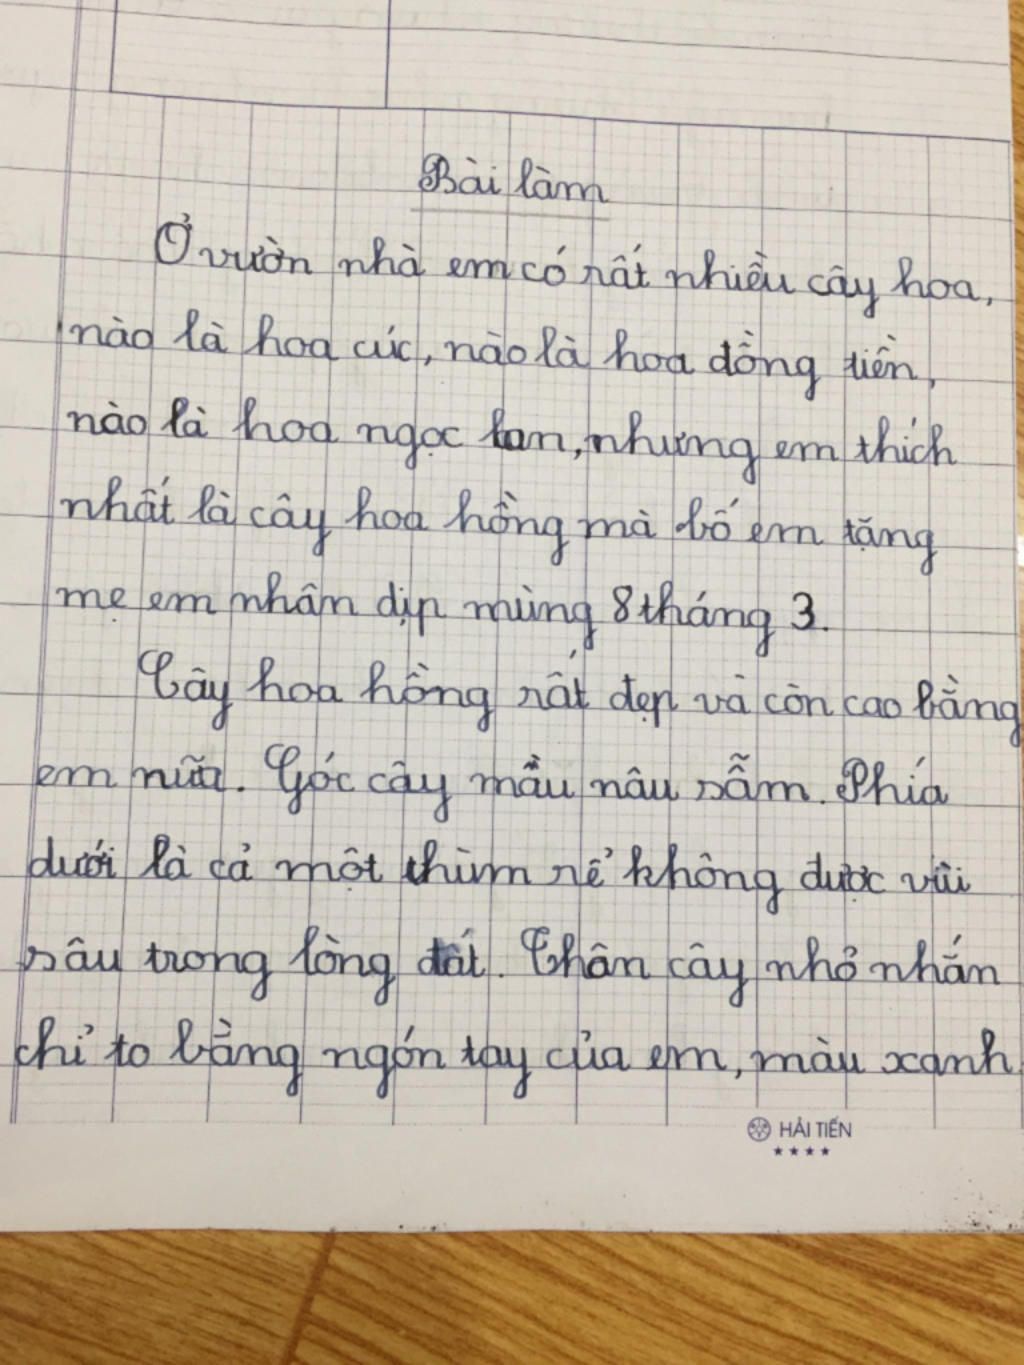 Bài làm
Ở vườn nhà em có rất nhiều cây hoa,
nào là hoa cúc, nào là hoa đồng tiền,
nào là hoa ngọc lan, nhưng em thích
nhất là cây hoa hồng mà bố em tặng
mẹ em nhân dịp mùng 8 tháng 3.
Cây hoa hồng rất đẹp và còn cao bằng
em nữa. Gốc cây mầu nâu sẫm. Phía
dưới là cả một chùm rễ khổng được vùi
sâu trong lòng đất. Thân cây nhỏ nhắn
chỉ to bằng ngón tay của em, màu xanh
HẢI TIẾN